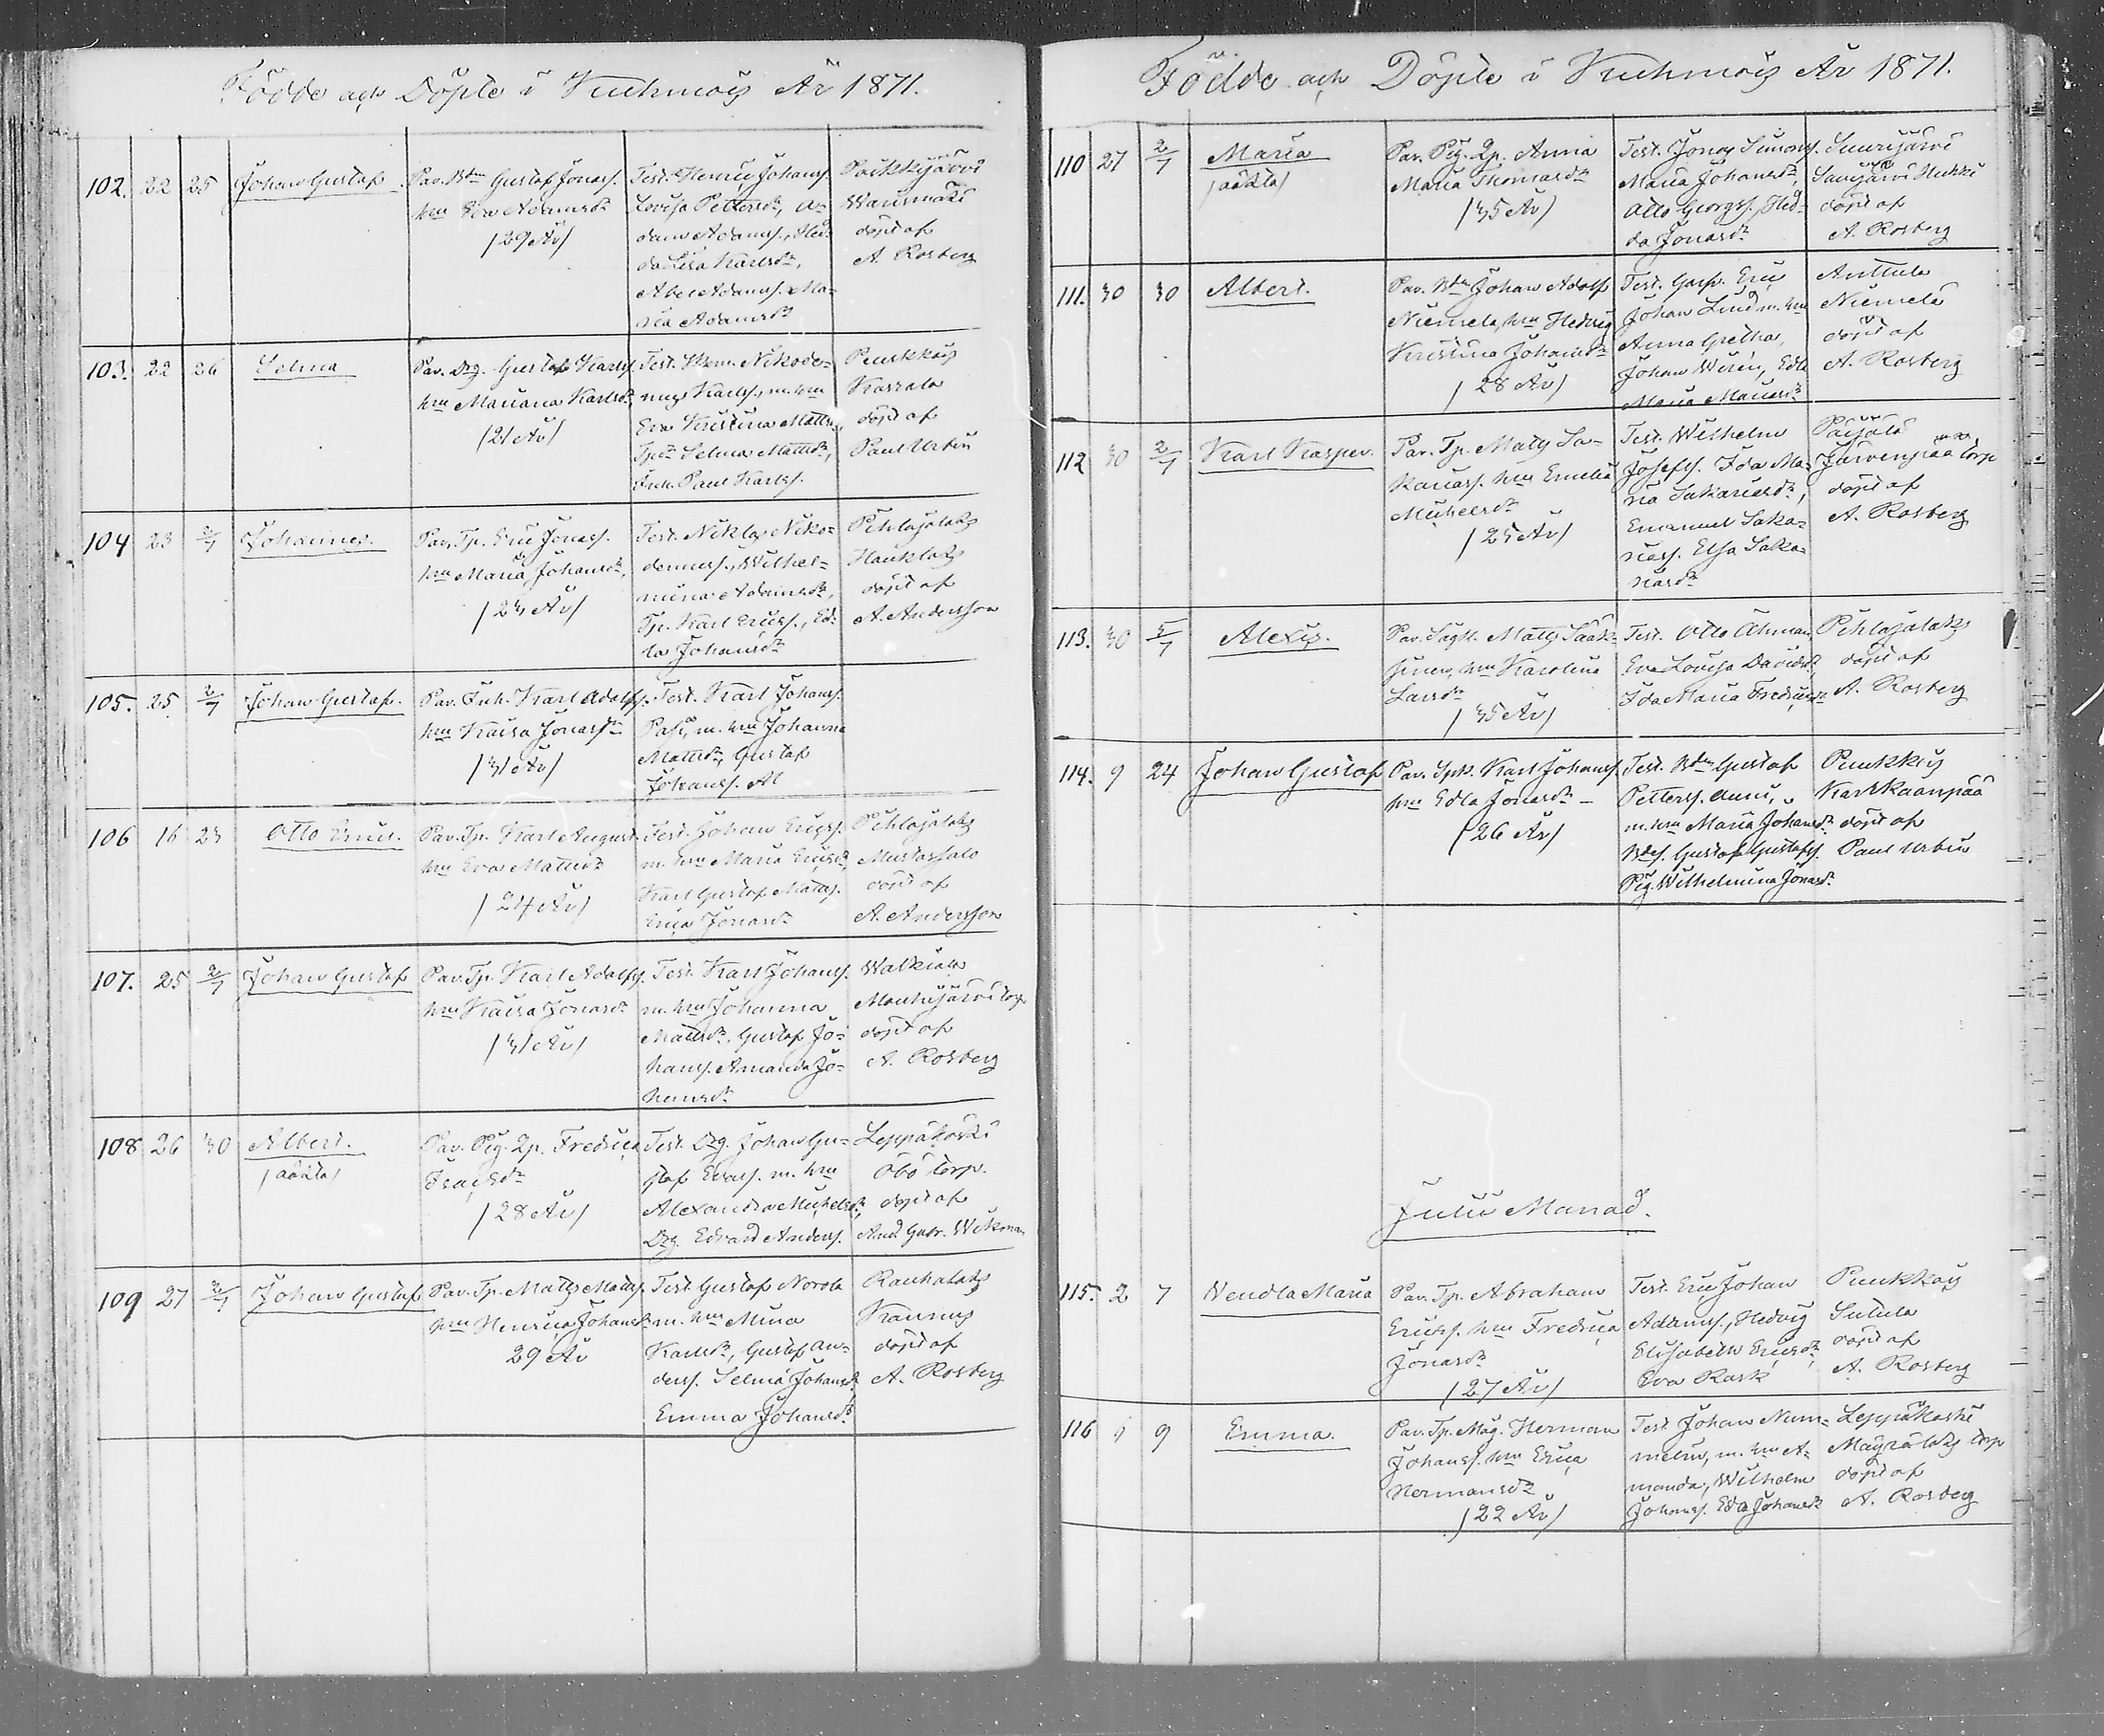 Födde och Döpte i Kuhmois År 1871.
102. 22 25 Johan Gustaf
Par. Bdn Gustaf Jonass.
hm Eva Adamsdr
/29 År/
Test. Henric Johanss.
Lovisa Pettersdr, A-
dam Adamss., Hed-
da Lisa Karlsdr,
Abel Adamss. Ma-
ria Adamsdr
Päikkijärvi
döpt af
A. Rosberg
103. 22 26 Selma
Par. Drg. Gustaf Karlss.
hm Mariana Karlsdr
/21 År/
Test. Nikode-
mus Karlss., m. hm
Eva Kristina Mattsdr,
Selma Mattsdr,
Inh. Paul Karlss.
Puukkois
Karrala
döpt af
Paul Urbin
104 23 2/7 Johannes.
Par. Tp. Eric Jonass.
hm Maria Johansdr,
/23 År/
Test. Niklas Niko-
demuss., Wilhel-
mina Adamsdr,
Tp. Karl Ericss., Ed-
la Johansdr
Pihlajalaks
Hauklaks
döpt af
A. Andersson
105. 25 2/7 Johan Gustaf.
Par. Inh. Karl Adolfss.
hm Kaisa Jonassdr
/31 År/
Test. Karl Johanss.
m. hm Johanna
Mattsdr, Gustaf
Johanss. Al
106 16 23 Otto Emil.
Par. Tp. Karl August
hm Eva Mattsdr
/24 År/
Test. Johan Ericss.
m. hm Maria Ericsdr,
Karl Gustaf Mattss.
Erica Jonasdr
Pihlajalaks
Mustassalo
döpt af
A. Andersson
107. 25 2/7 Johan Gustaf
Par. Tp. Karl Adolfss.
hm Kaisa Jonasdr
/31 År/
Test. Karl Johanss.
m. hm Johanna
Mattsdr, Gustaf Jo-
hanss. Amanda Jo-
hansdr
Walkiala
döpt af
A. Rosberg
108 26 30 Albert.
/oäkta/
Par. Pig. Lp. Fredrica
Isacsdr
/28 År/
Test. Drg. Johan Gu-
staf m. hm
Alexandra Michelsdr,
Drg. Edvard Anderss.
Leppäkoski
Öbö torp.
döpt af
And. Gabr. Wikman
109 27 2/7 Johan Gustaf
Par. Tp. Matts Mattss.
hm Henrica Johansdr
29 År
Test Gustaf Norola
m. hm Mina
Karlsdr, Gustaf An-
derss. Selma Johansdr
Emma Johansdr
Rauhalaks
Kannus
döpt af
A. Rosberg
Födde och Döpte i Kuhmois År 1871.
110 27 2/7 Maria
/oäkta/
Par. Pig. Lp. Anna
Maria Thomasdr
/35 År/
Test. Jonas Simons.
Maria Johansdr,
Otto Georgss., Hed-
da Jonasdr
Sarvijärvi Heikki
döpt af
A. Rosberg
111. 30 30 Albert.
Par. Bdn Johan Adolf
Niemelä, hm Hedvig
Kristina Johansdr
/28 År/
Test. Gasp. Eric
Johan Lind m. hm
Anna Gretha,
Johan Wirén, Edla
Maria Mariasdr
Anttula
Niemelä
döpt af
A. Rosberg
112 30 2/7 Karl Kasper.
Par. Tp. Matts Sa-
kariass. hm Emelia
Michelsdr
/25 År/
Test. Wilhelm
Josefss. Ida Ma-
ria Sakariasdr,
Emanuel Saka-
riass. Elsa Saka-
riasdr
Päijälä
Järvenpää torp
döpt af
A. Rosberg
113. 30 5/7 Alexis.
Par. Matts Sääk-
jinen, hm Karolina
Larsdr
/35 År/
Test. Otto Åhman,
Eva Lovisa Davidsdr,
Ida Maria Fredricsdr
Pihlajalaks
döpt af
A. Rosberg
114. 9 24 Johan Gustaf
Par. Spk. Karl Johanss.
hm Edla Jonasdr –
/26 År/
Test. Bdn Gustaf
Petterss. Auni,
m. hm Maria Johansdr
Bdes. Gustaf Gustafss.
Pig. Wilhelmina Jonasdr
Puukkois
Karkkaanpää
döpt af
Paul Urbin
Julii Månad.
115. 2 7 Wendla Maria
Par. Tp. Abraham
Ericss. hm Fredrica
Jonasdr
/27 År/
Test. Eric Johan
Adamss., Hedvig
Elisabeth Ericsdr,
Eva Rask
Puukkois
Sutula
döpt af
A. Rosberg
116 9 Emma.
Par. Tp. Mag. Herman
Johanss. hm Erica
Hermansdr
/22 År/
Test Johan Num-
melin, m. hm A-
manda, Wilhelm
Johanss. Eda Johansdr
Leppäkoski
Mäyrälaks torp
döpt af
A. Rosberg